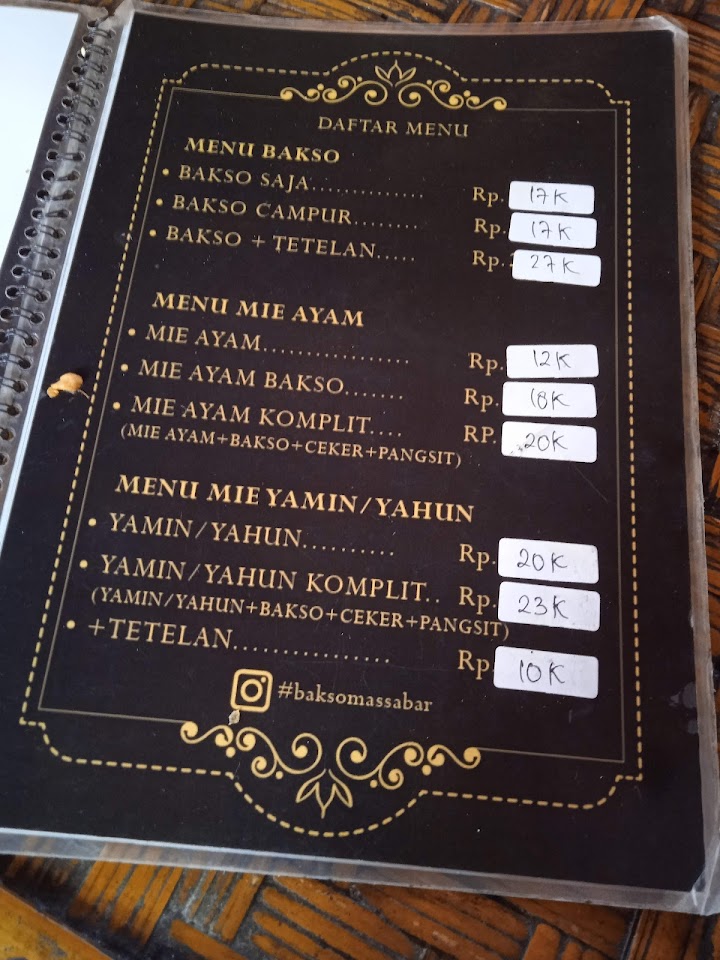 DAFTAR MENU
MENU BAKSO
• BAKSO SAJA.............. Rp. 17K
• BAKSO CAMPUR........ Rp. 17K
• BAKSO + TETELAN..... Rp. 27K
MENU MIE AYAM
• MIE AYAM................. Rp. 12K
• MIE AYAM BAKSO....... Rp. 18K
• MIE AYAM KOMPLIT.... RP. 20K
(MIE AYAM+BAKSO+CEKER+PANGSIT)
MENU MIE YAMIN/YAHUN
• YAMIN/YAHUN.......... Rp. 20K
• YAMIN/YAHUN KOMPLIT.. Rp. 23K
(YAMIN/YAHUN+BAKSO+CEKER+PANGSIT)
• +TETELAN................ Rp 10K
#baksomassabar